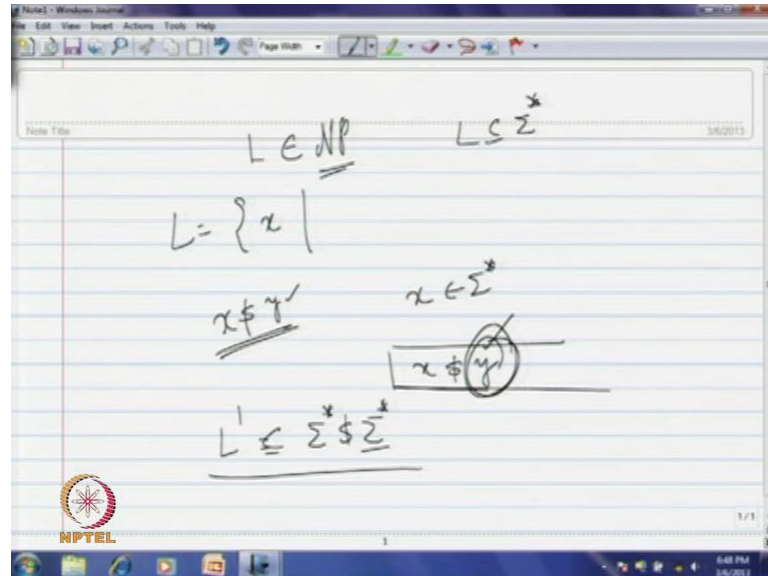 Note1 - Windows Journal
File Edit View Insert Actions Tools Help
Page Width
Note Title
3/6/2013
L ∈ NP L ⊆ Σ*
L = { x |
x $ y ✓ x ∈ Σ*
x $ y
L' ⊆ Σ* $ Σ*
NPTEL
1/1
1
6:48 PM
3/6/2013